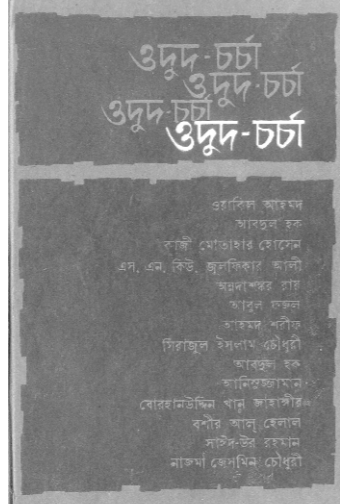 ওদুদ-চর্চা
ওদুদ-চর্চা
ওদুদ-চর্চা
ওদুদ-চর্চা
ওয়াকিল আহমদ
আবদুল হক
কাজী মোতাহার হোসেন
এস. এন. কিউ. জুলফিকার আলী
অন্নদাশঙ্কর রায়
আবুল ফজল
আহমদ শরীফ
সিরাজুল ইসলাম চৌধুরী
আবদুল হক
আনিসুজ্জামান
বোরহানউদ্দিন খান জাহাঙ্গীর
বশীর আল্ হেলাল
সাঈদ-উর রহমান
নাজমা জেসমিন চৌধুরী